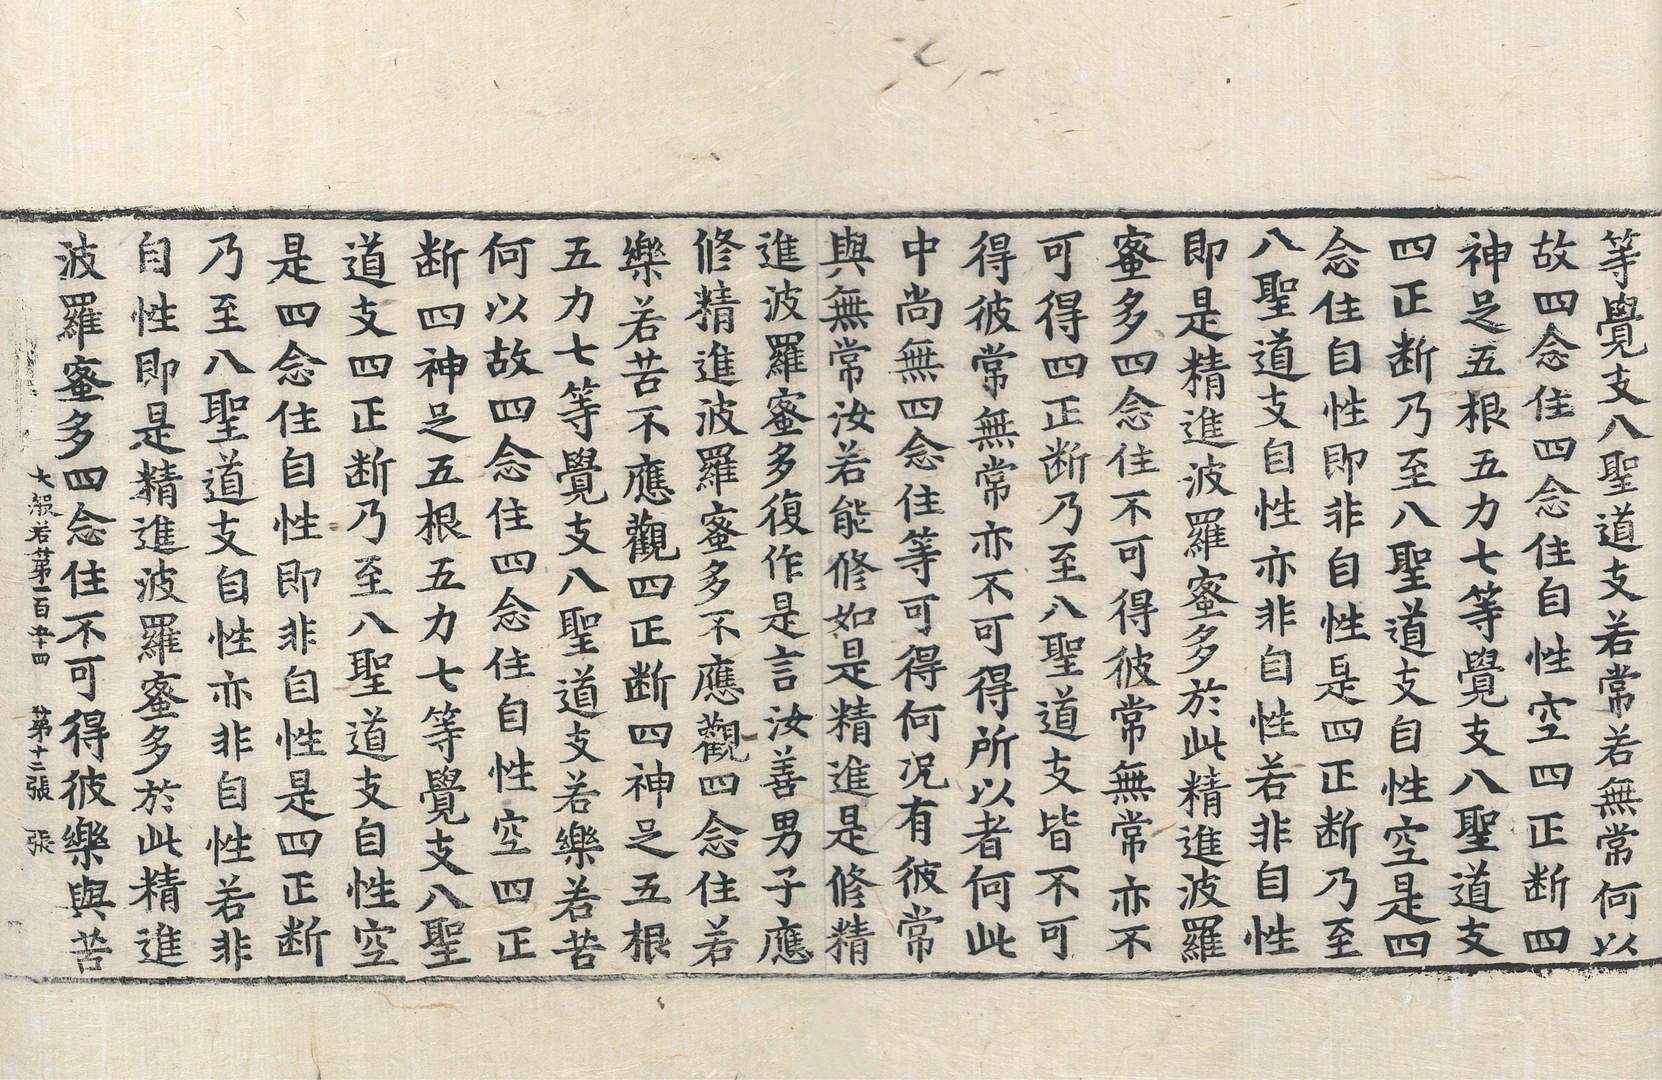 等覺支八聖道支若常若無常何以
故四念住四念住自性空四正断四
神足五根五力七等覺支八聖道支
四正断乃至八聖道支自性空是四
念住自性即非自性是四正断乃至
八聖道支自性亦非自性若非自性
即是精進波羅蜜多於此精進波羅
蜜多四念住不可得彼常無常亦不
可得四正断乃至八聖道支皆不可
得彼常無常亦不可得所以者何此
中尚無四念住等可得何况有彼常
與無常汝若能修如是精進是修精
進波羅蜜多復作是言汝善男子應
修精進波羅蜜多不應觀四念住若
樂若苦不應觀四正断四神足五根
五力七等覺支八聖道支若樂若苦
何以故四念住四念住自性空四正
断四神足五根五力七等覺支八聖
道支四正断乃至八聖道支自性空
是四念住自性即非自性是四正断
乃至八聖道支自性亦非自性若非
自性即是精進波羅蜜多於此精進
波羅蜜多四念住不可得彼樂與苦
大般若第一百五十四 第十二張 張